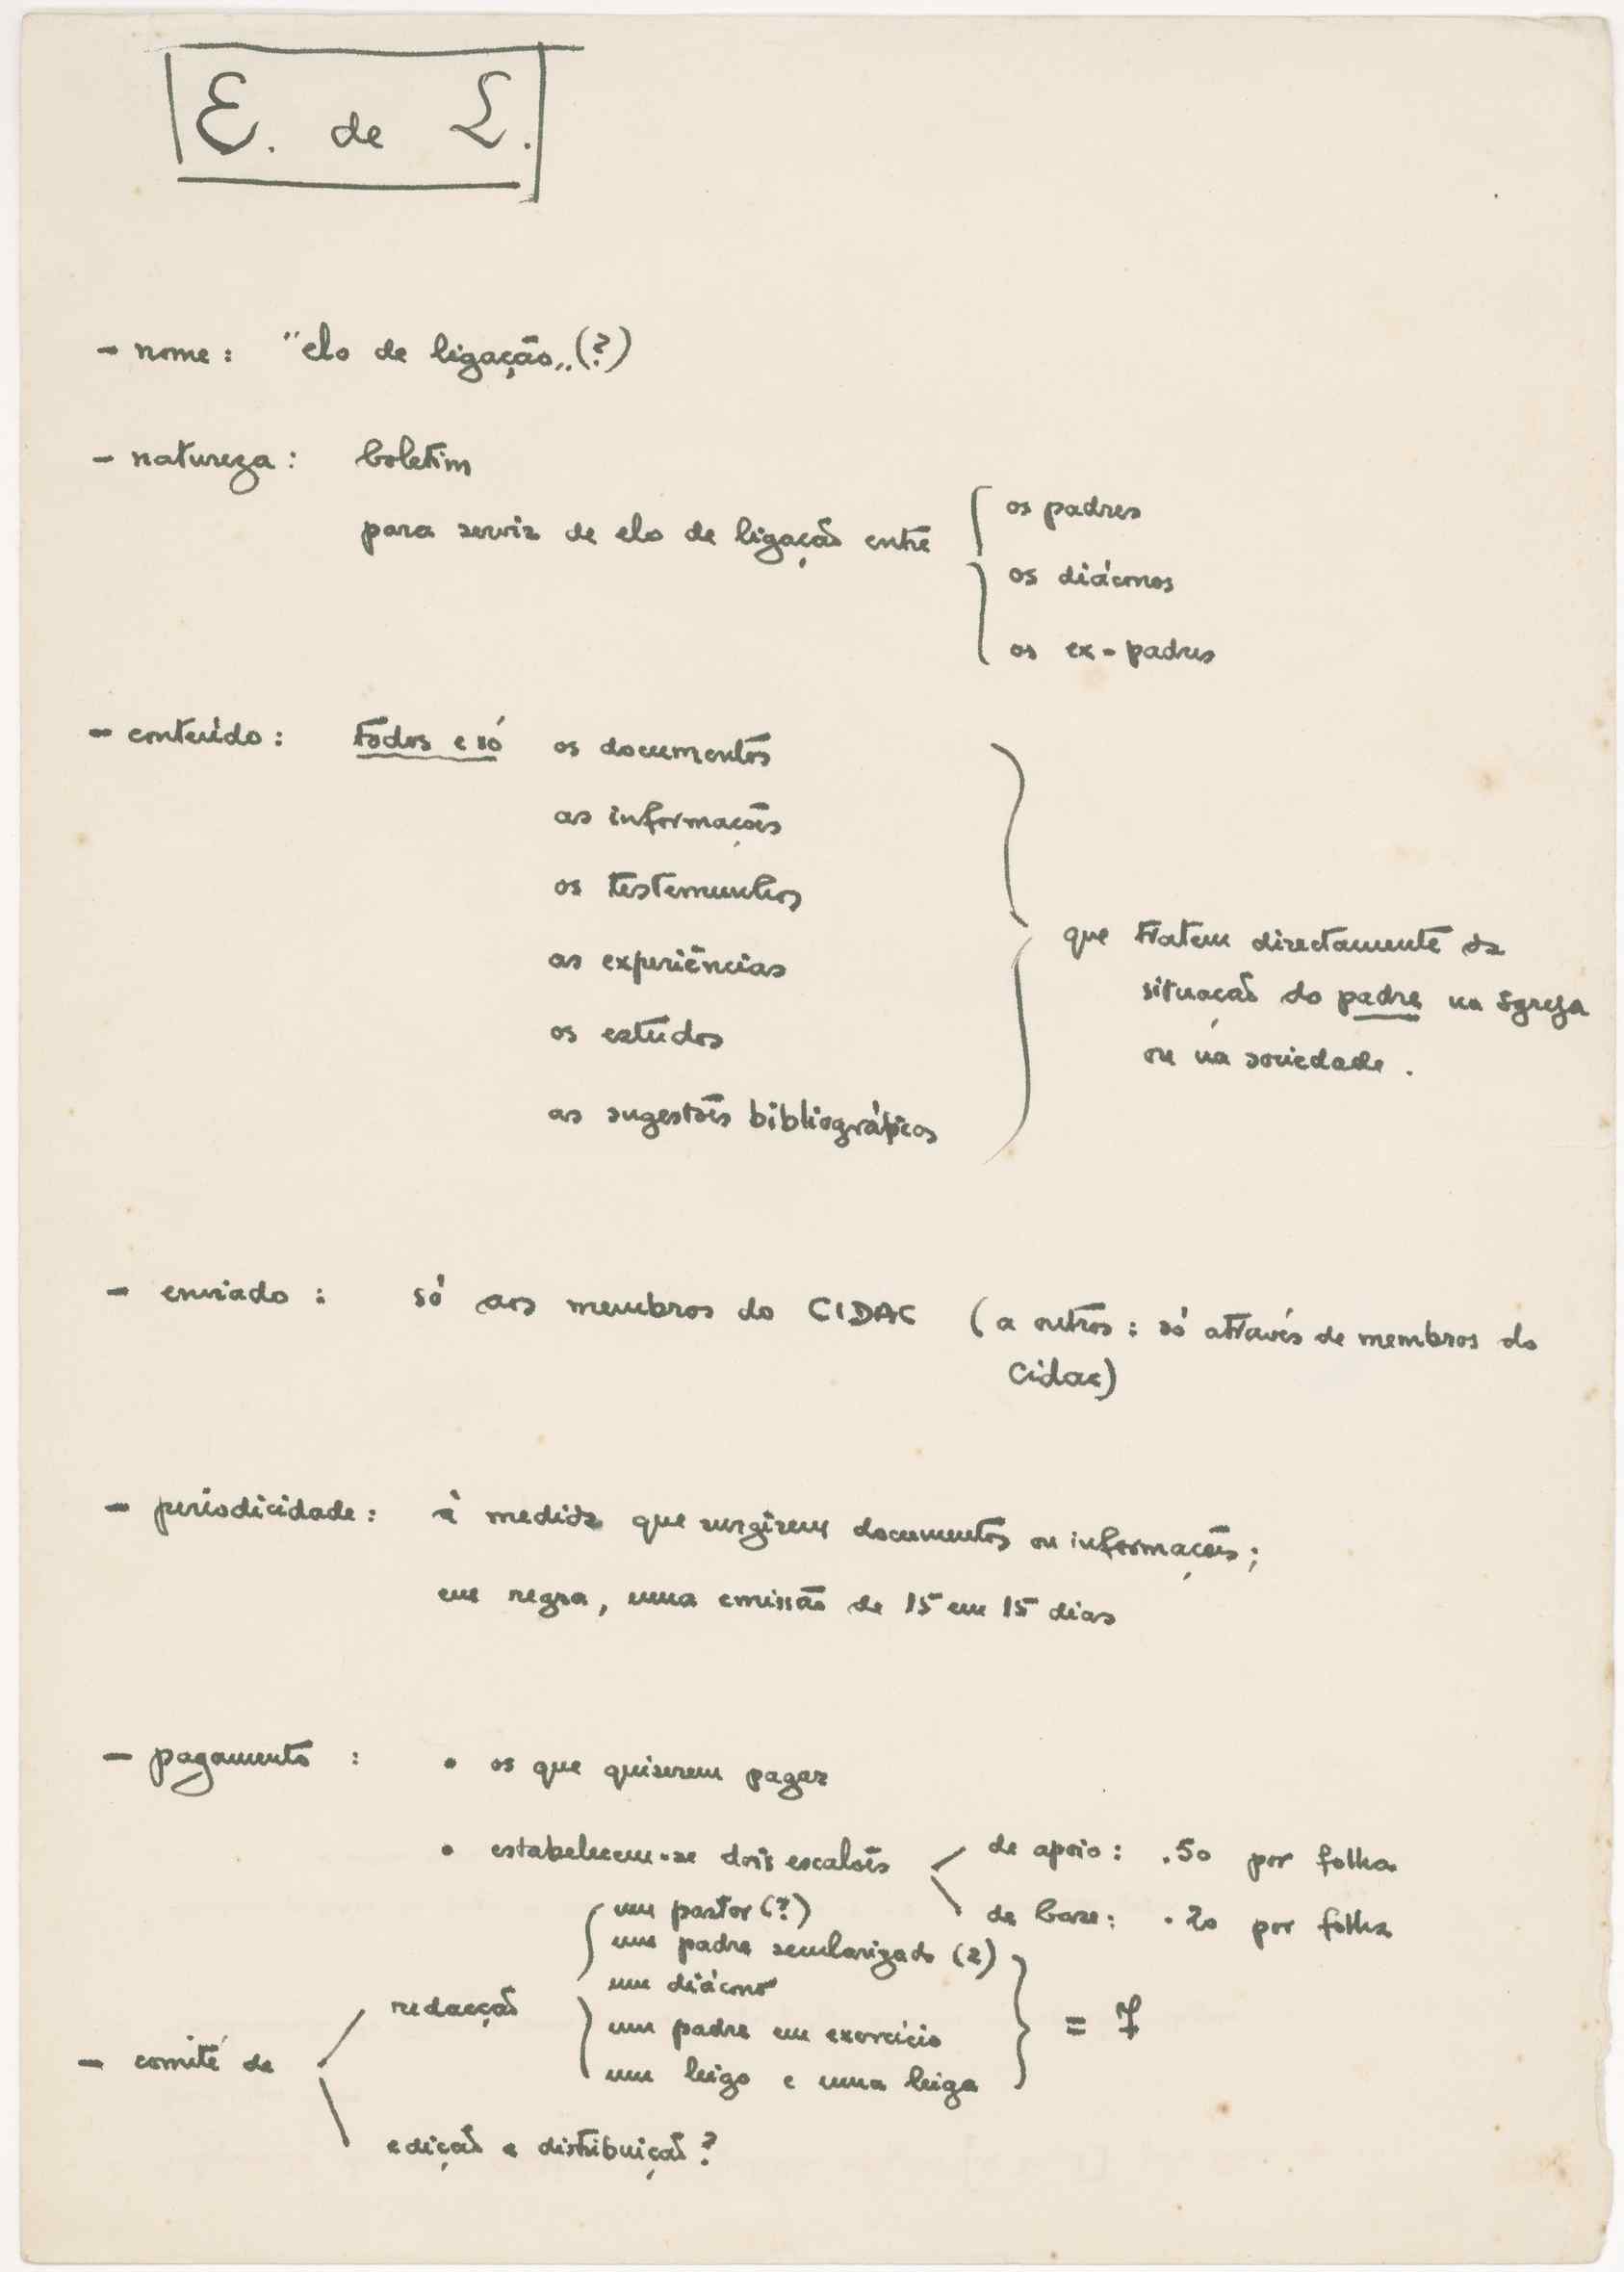 E. de L.
- nome: "elo de ligação„ (?)
- natureza: boletim
para servir de elo de ligação entre
os padres
os diáconos
os ex-padres
- conteúdo: todos e só os documentos
as informações
os testemunhos
as experiências
os estudos
as sugestões bibliográficas
que tratem directamente da
situação do padre na Igreja
ou na sociedade.
- enviado: só aos membros do CIDAC (a outros: só através de membros do
Cidac)
- periodicidade: à medida que surgirem documentos ou informações;
em regra, uma emissão de 15 em 15 dias
- pagamento: • os que quiserem pagar
• estabelecem-se dois escalões
de apoio: .50 por folha
de base: .20 por folha
- comité de
redacção
um pastor (?)
um padre secularizado (2)
um diácono
um padre em exercício
um leigo e uma leiga
= 7
edição e distribuição?